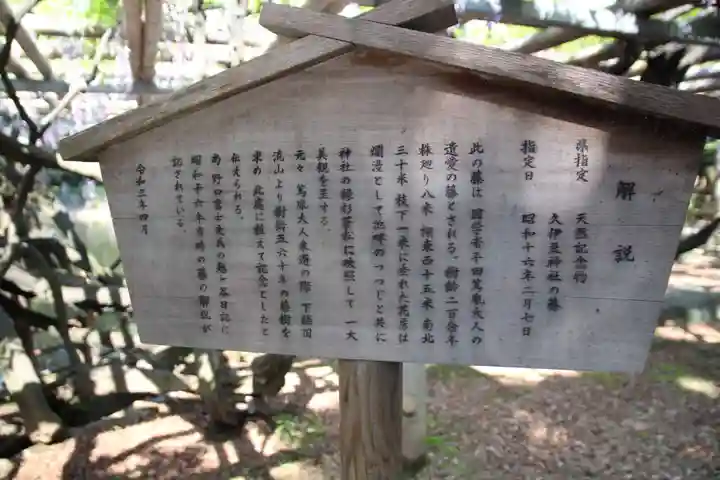 解説
県指定 天然記念物
久伊豆神社の藤
指定日 昭和十六年二月七日
此の藤は、国学者平田篤胤大人の
遺愛の藤とされる。樹齢二百余年
株廻り八米 棚東西十五米 南北
三十米 枝下一米に垂れた花房は
爛漫として池畔のつつじと共に
神社の緑杉翠松に映照して 一大
美観を呈する。
元々 篤胤大人来遊の際 下総国
流山より樹齢五六十年の藤樹を
求め 此處に植えて記念としたと
伝えられる。
尚 野口富士夫氏の越ヶ谷日記に
昭和十六年当時の藤の御仮が
記されている。
令和三年四月